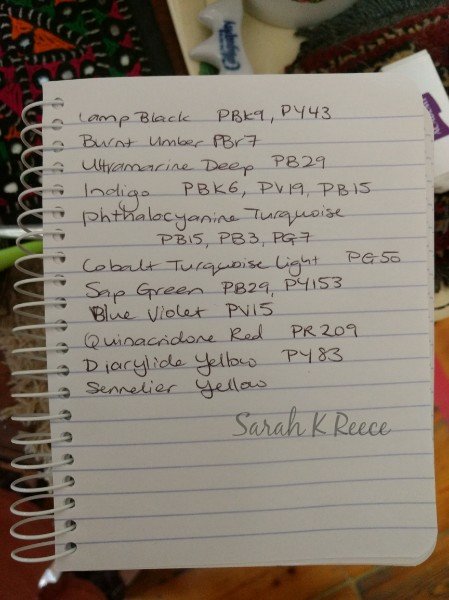 Lamp Black PBk9, PY43
Burnt Umber PBr7
Ultramarine Deep PB29
Indigo PBK6, PV19, PB15
Phthalocyanine Turquoise
PB15, PB3, PG7
Cobalt Turquoise Light PG50
Sap Green PB29, PY153
Blue Violet PV15
Quinacridone Red PR209
Diarylide Yellow PY83
Sennelier Yellow
Sarah K Reece